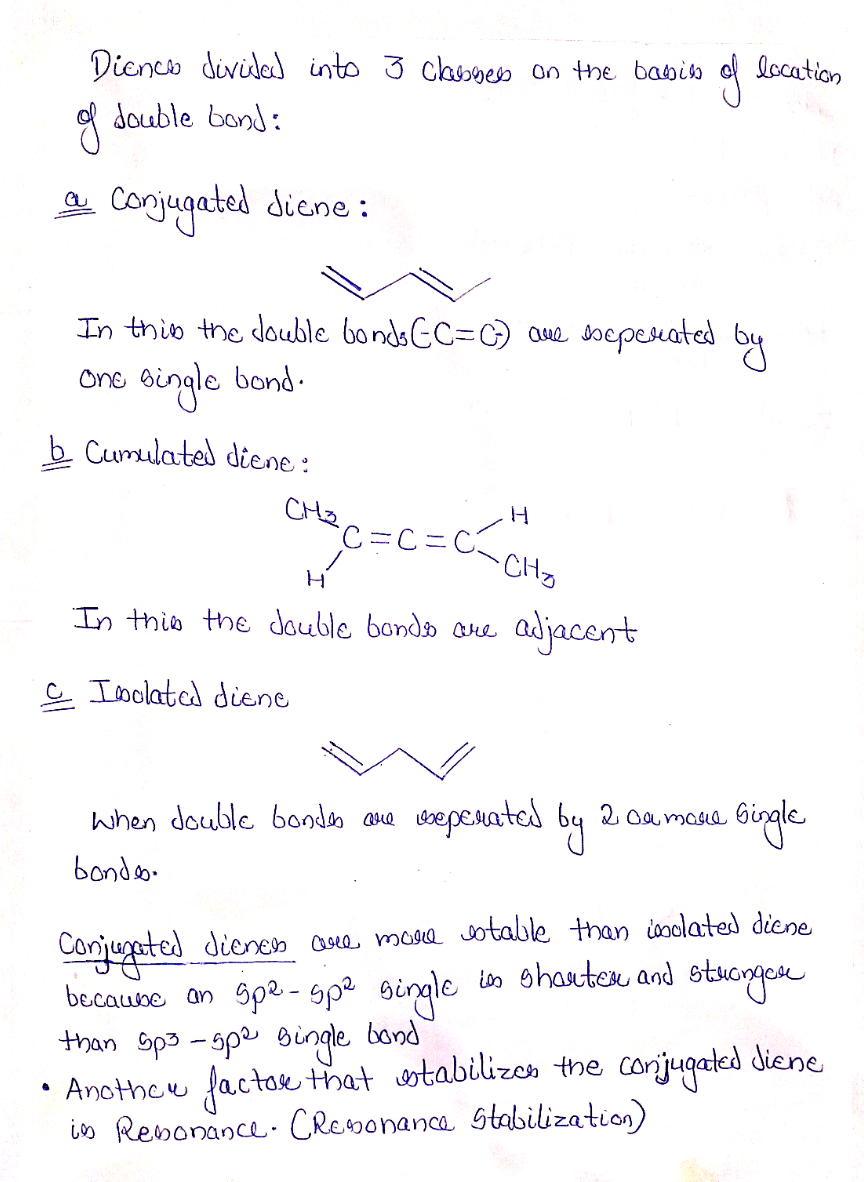 Dienes divided into 3 classes on the basis of location
of double bond:
a Conjugated diene:
In this the double bonds(-C=C-) are seperated by
one single bond.
b Cumulated diene:
CH3 H
C=C=C
H CH3
In this the double bonds are adjacent
c Isolated diene
When double bonds are seperated by 2 or more single
bonds.
Conjugated dienes are more stable than isolated diene
because an sp2-sp2 single is shorter and stronger
than sp3-sp2 single bond
• Another factor that stabilizes the conjugated diene
is Resonance. (Resonance Stabilization)